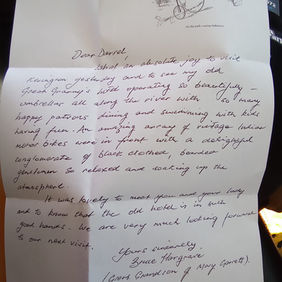 Dear Darrel,
What an absolute joy to visit
yesterday and to see my old
Great Granny's hotel operating so beautifully –
umbrellas all along the river with so many
happy patrons dining and swimming with kids
having fun. An amazing array of vintage Indian
motor bikes were in front with a delightful
conglomerate of black clothed, bearded
gentlemen so relaxed and soaking up the
atmosphere.
It was lovely to meet you and your lady
and to know that the old hotel is in such
good hands. We are very much looking forward
to our next visit.
Yours sincerely,
Bruce Hargrave
(Great Grandson of Mary Garrett).